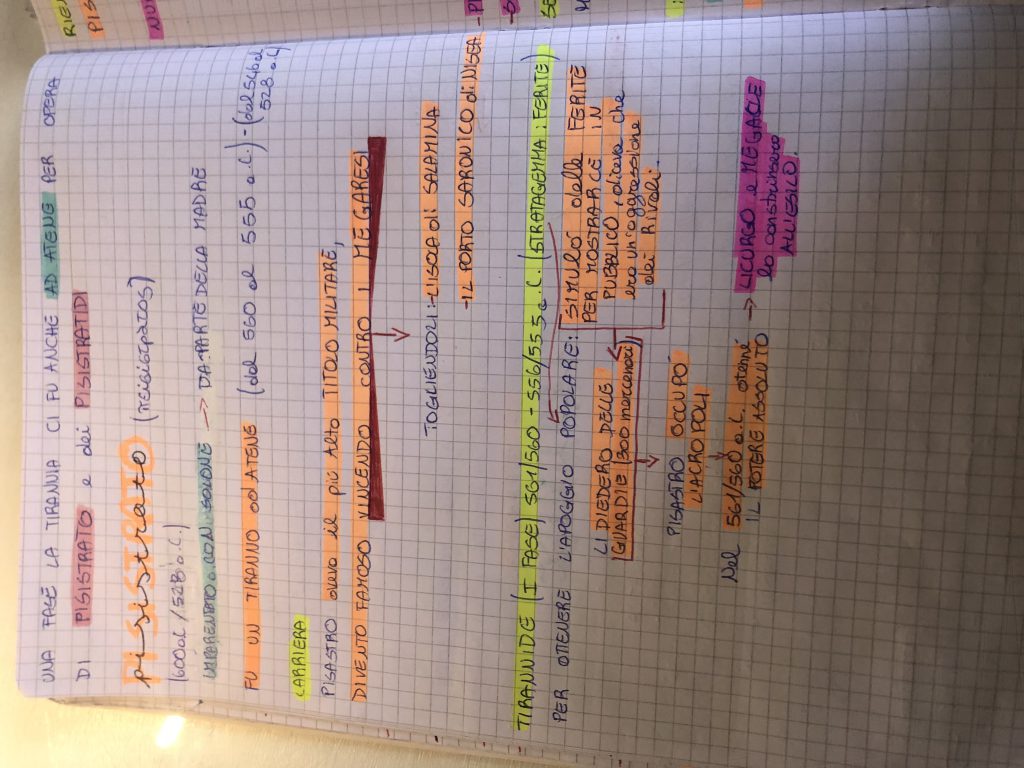 UNA FASE LA TIRANNIA CI FU ANCHE AD ATENE PER OPERA
DI PISISTRATO e dei PISISTRATIDI
pisistrato
(600al/528 a.C.)
→ DA PARTE DELLA MADRE
FU UN TIRANNO DI ATENE (dal 560 al 555 a.C.) - (dal 546 al
528 a.C)
CARRIERA
PISASTRO aveva il più ALTO TITOLO MILITARE,
DIVENTÒ FAMOSO VINCENDO CONTRO I MEGARESI
TOGLIENDOLI: -L'ISOLA di SALAMINA
-IL PORTO SARONICO di NISEA
TIRANNIDE (I FASE) 561/560 - 556/555 a.C. (STRATAGEMMA: FERITE)
PER OTTENERE L'APOGGIO POPOLARE: SIMULÒ delle FERITE
PER MOSTRARCE IN
PUBBLICO, diceva che
era un'aggressione
dei Rivali.
LI DIEDERO DELLE
GUARDIE (300 mercenari)
PISASTRO OCCUPÓ
L'ACROPOLI
Nel 561/560 a.C. ottenne
IL POTERE ASSOLUTO → LICURGO e MEGACLE
lo constrinsero
ALL'ESILIO.